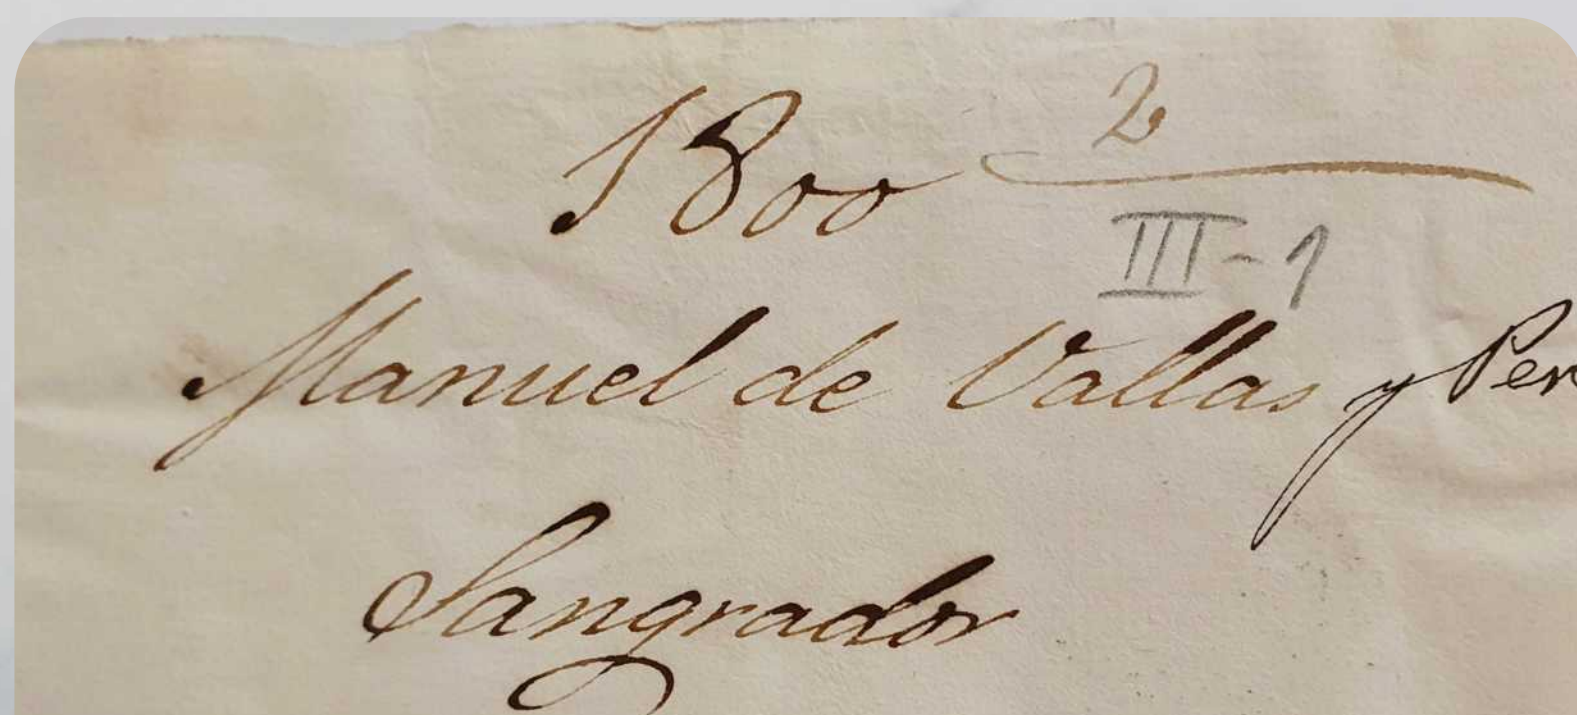 1800
2
III-1
Manuel de Vallas y Per
Sangrador